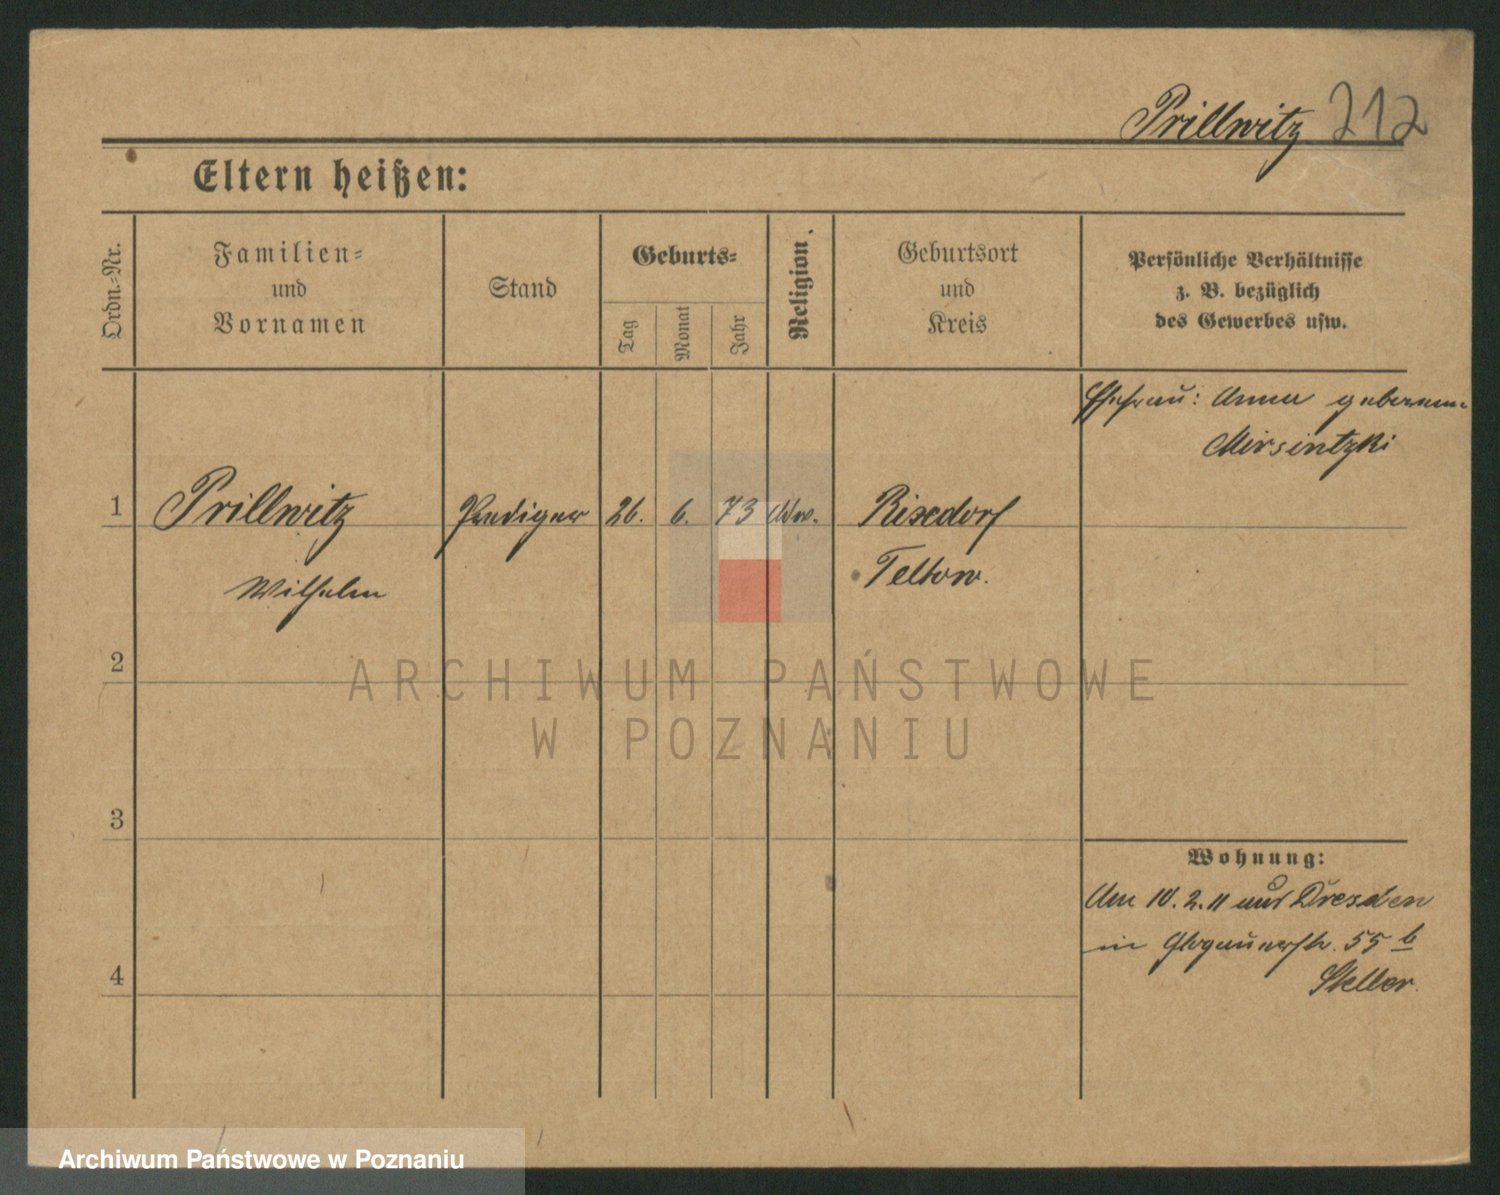 Prillwitz 212
Eltern heißen:
Ordn.-Nr.
Familien-
und
Vornamen
Stand
Geburts-
Tag
Monat
Jahr
Religion.
Geburtsort
und
Kreis
Persönliche Verhältnisse
z. B. bezüglich
des Gewerbes usw.
Ehefrau: Anna geborene
Mirsintzki
1 Prillwitz Prediger 26. 6. 73 Rixdorf
Wilhelm Teltow.
2
ARCHIWUM PAŃSTWOWE
W POZNANIU
3
Wohnung:
Am 10. 2. 11 aus Dresden
in Glogauerstr. 55 b
Steller.
4
Archiwum Państwowe w Poznaniu